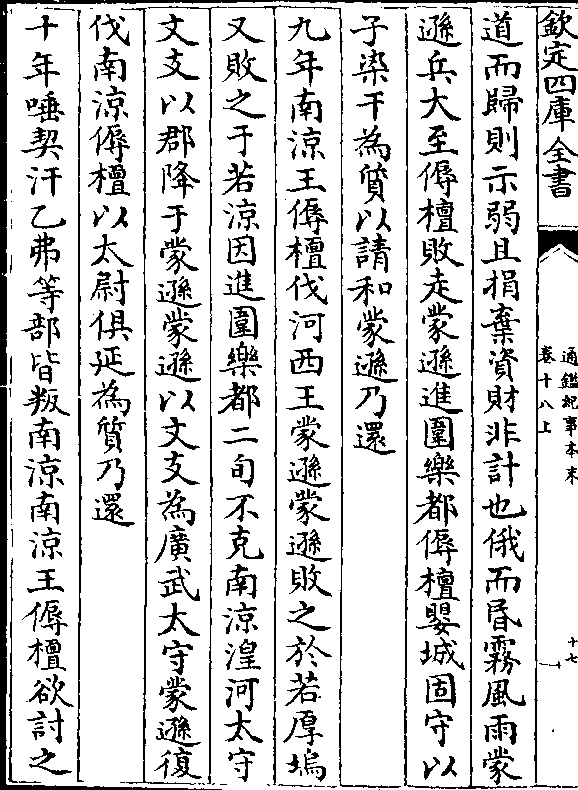 欽定四庫全書
通鑑紀事本末
卷十八上
十七
道而歸則示弱且捐棄資財非計也俄而昬霧風雨蒙
遜兵大至傉檀敗走蒙遜進圍樂都傉檀嬰城固守以
子染干為質以請和蒙遜乃還
九年南涼王傉檀伐河西王蒙遜蒙遜敗之於若厚塢
又敗之于若涼因進圍樂都二旬不克南涼湟河太守
文支以郡降于蒙遜蒙遜以文支為廣武太守蒙遜復
伐南涼傉檀以太尉俱延為質乃還
十年唾契汗乙弗等部皆叛南涼南涼王傉檀欲討之